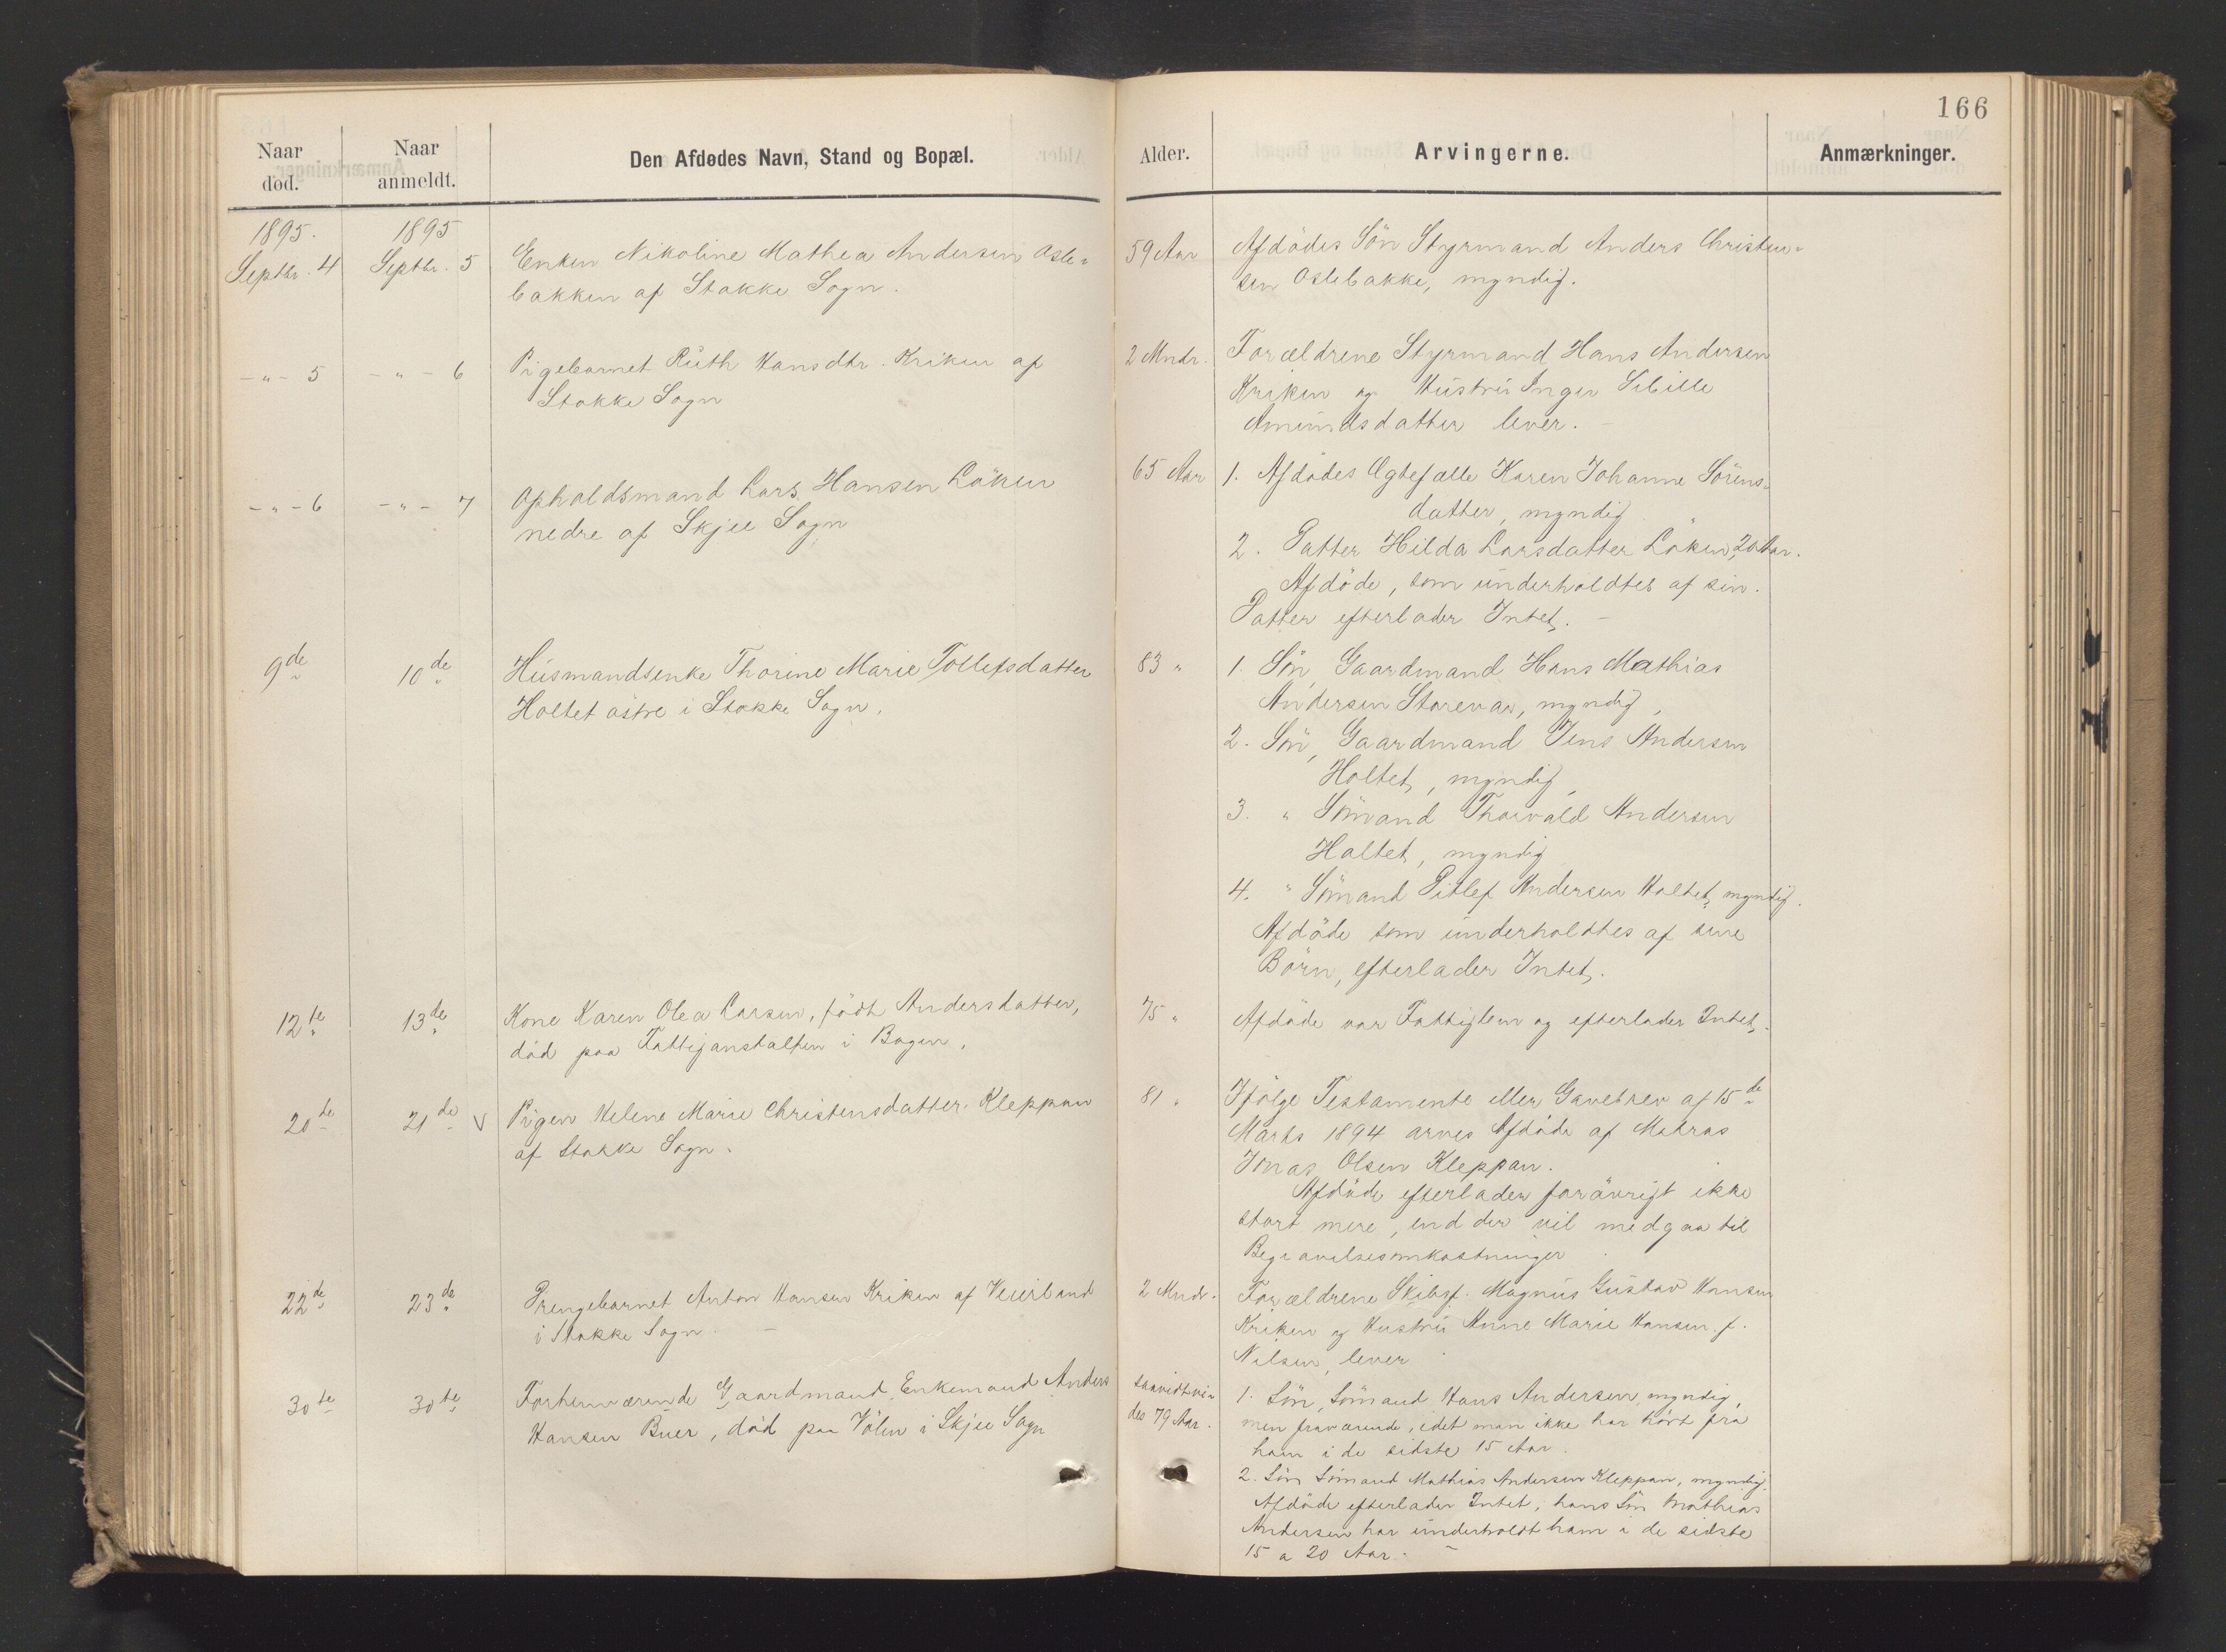 166
Naar død.
Naar anmeldt.
Den Afdødes Navn, Stand og Bopæl.
Alder.
Arvingerne.
Anmærkninger.
1895. Septbr. 4
1895 Septbr. 5
Enken Nikoline Mathea Andersen Osle-
bakken af Stokke Sogn.
59 Aar
Afdödes Sön Styrmand Anders Christen-
sen Oslebakke, myndig.
-"- 5
-"- 6
Pigebarnet Ruth Hansdtr. Kriken af
Stokke Sogn
2 Mndr.
Forældrene Styrmand Hans Andersen
Kriken og Hustru Inger Sibille
Amundsdatter lever. -
-"- 6
-"- 7
Opholdsmand Lars Hansen Löken
nedre af Skjee Sogn
65 Aar
1. Afdödes Ægtefælle Karen Johanne Sörens-
datter, myndig
2. Datter Hilda Larsdatter Löken, 20 Aar.
Afdöde, som underholdtes af sin
Datter efterlader Intet. -
9de
10de
Husmandsenke Thorine Marie Tollefsdatter
Holtet östre i Stokke Sogn.
83 "
1. Sön, Gaardmand Hans Mathias
Andersen Storevar, myndig,
2. Sön, Gaardmand Jens Andersen
Holtet, myndig,
3. " Sömand Thorvald Andersen
Holtet, myndig
4. " Sömand Ditlef Andersen Holtet, myndig.
Afdöde som underholdtes af sine
Börn, efterlader Intet.
12te
13de
Kone Karen Olea Larsen, födt Andersdatter,
död paa Fattiganstalten i Bogen.
75 "
Afdöde var Fattiglem og efterlader Intet.
20de
21de V
Pigen Helene Marie Christensdatter Kleppan
af Stokke Sogn.
81 "
Ifölge Testamente eller Gavebrev af 15de
Marts 1894 arves Afdöde af Matros
Jonas Olsen Kleppan.
Afdöde efterlader forövrigt ikke
stort mere, end der vil medgaa til
Begravelsesomkostninger
22de
23de
Drengebarnet Anton Hansen Kriken af Veierland
i Stokke Sogn. -
2 Mndr.
Forældrene Skibsf. Magnus Gustav Hansen
Kriken og Hustru Anne Marie Hansen f.
Nilsen, lever
30te
30te
Forhenværende Gaardmand, Enkemand Anders
Hansen Buer, död paa Völen i Skjee Sogn
saavidt vi-
des 79 Aar.
1. Sön, Sömand Hans Andersen, myndig,
men fraværende, idet man ikke har hört fra
ham i de sidste 15 Aar.
2. Sön Sömand Mathias Andersen Kleppan, myndig.
Afdöde efterlader Intet, hans Sön Mathias
Andersen har underholdt ham i de sidste
15 a 20 Aar. -